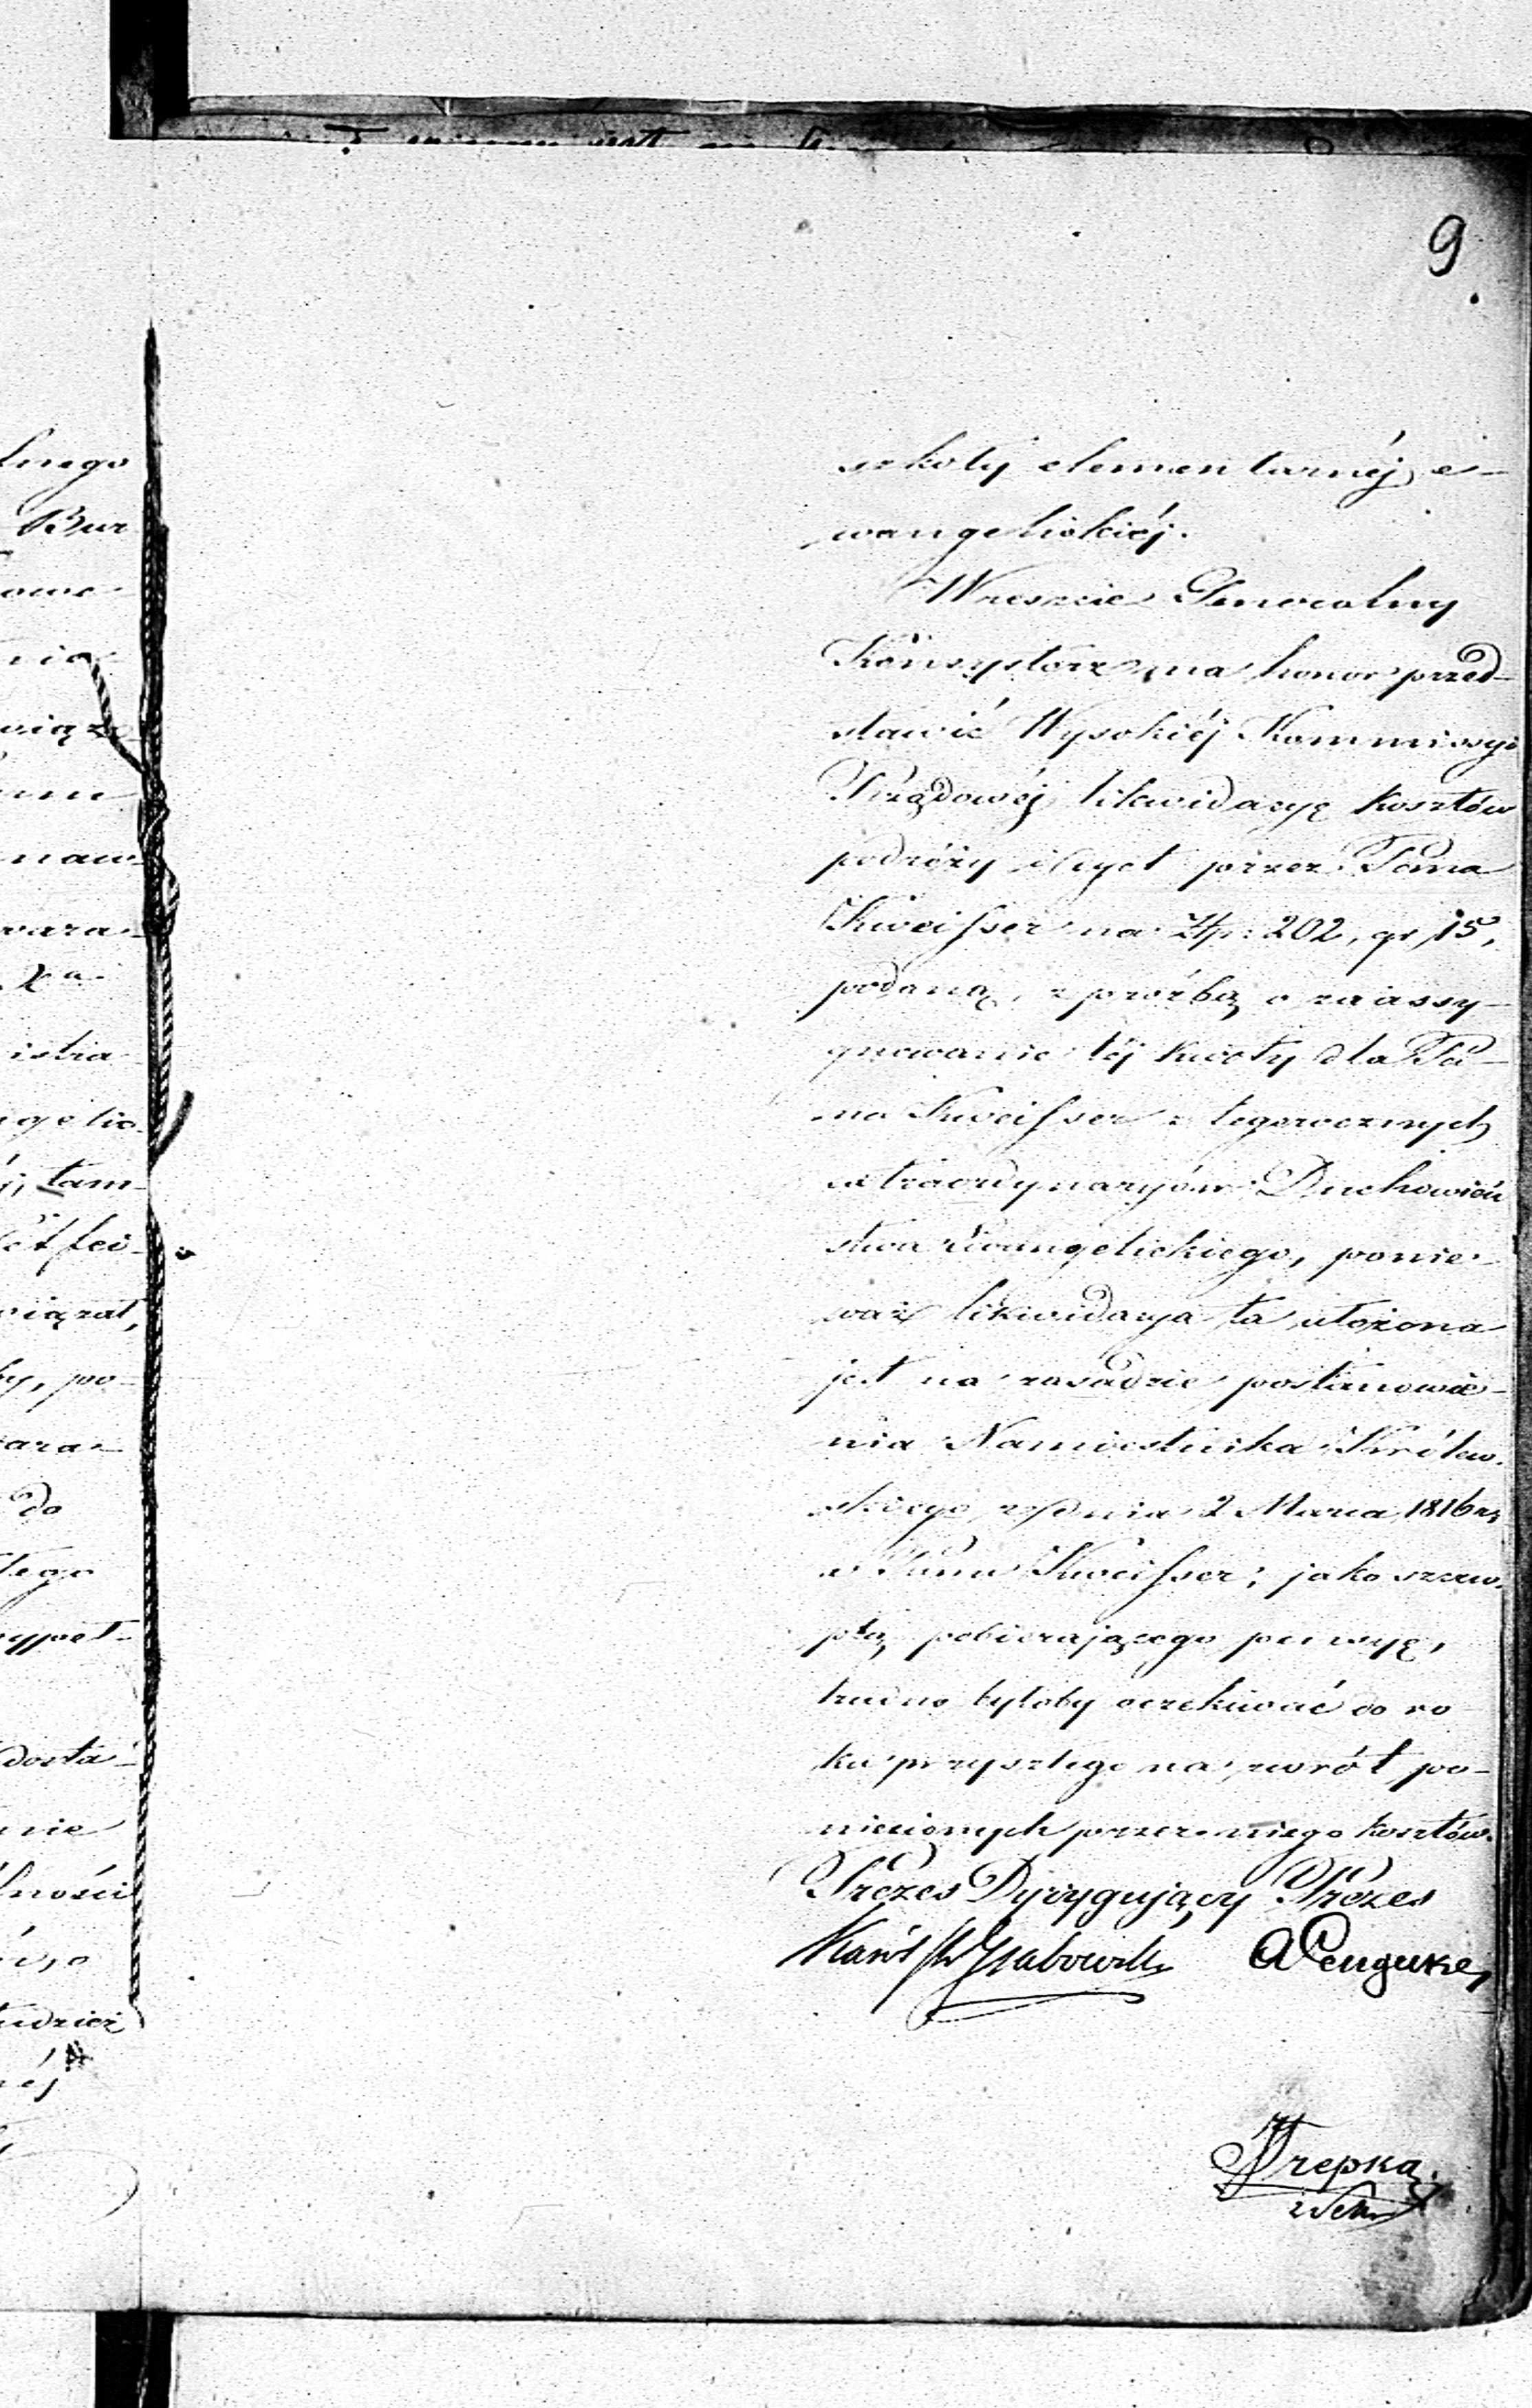 9
szkoły elementarnéj e-
wangelickiéj.
Wreszcie Generalny
Konsystorz ma honor przed-
stawić Wysokiéj Kommissyi
Rządowéj likwidacyę kosztów
podróży i dyet przez Pana
Kweisser na Złp: 202, gr 15,
podaną, z proźbą o zaassy-
gnowanie téj kwoty dla Pa-
na Kweisser z tegorocznych
extraordynaryów Duchowień
stwa Ewangelickiego, ponie-
waż likwidacya ta ułożona
jest na zasadzie postanowie-
nia Namiestnika Królew.
skiego z dnia 2 Marca 1816 r,
a Panu Kweisser, jako szczu-
płą pobierającego pensyę,
trudno byłoby oczekiwać do ro
ku przyszłego na zwrót po-
niesionych przez niego kosztów.
Prezes Dyrygujący Prezes
Grabowski
Trepka
lnego
Bur
owe
nia
wiąz
nau-
wara-
istia
ngelic-
tam-
wiązał,
by, po-
ara-
do
tego
wypeł-
dosta-
nie
lności
tudzież